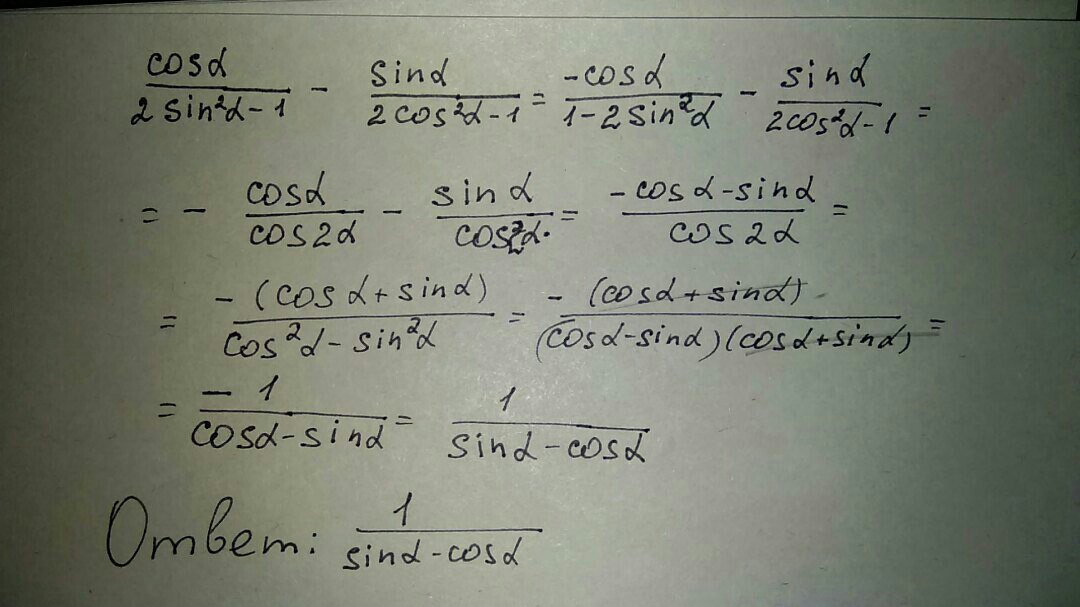 cosα/(2 sin²α-1) - sinα/(2cos²α-1) = -cosα/(1-2sin²α) - sinα/(2cos²α-1) =
= - cosα/cos2α - sinα/cos2α = (-cosα-sinα)/cos2α =
= -(cosα+sinα)/(cos²α-sin²α) = -(cosα+sinα)/((cosα-sinα)(cosα+sinα)) =
= -1/(cosα-sinα) = 1/(sinα-cosα)
Ответ: 1/(sinα-cosα)